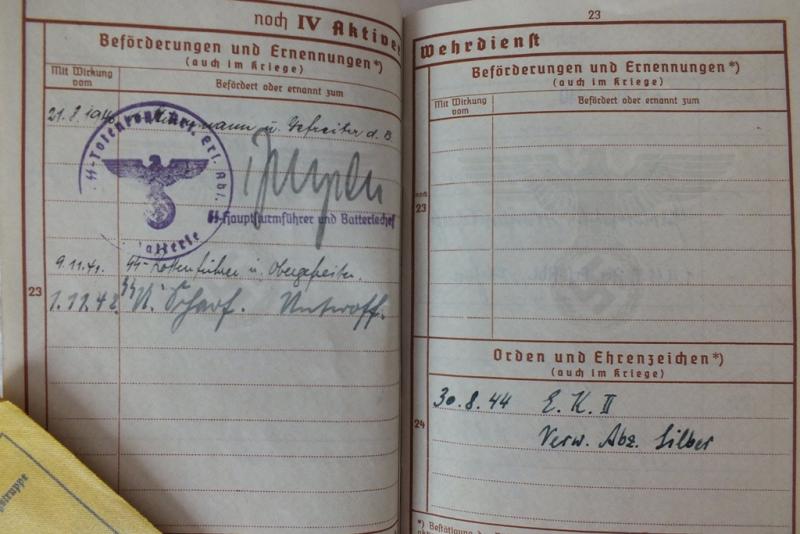 noch IV Aktiver
Beförderungen und Ernennungen*)
(auch im Kriege)
Mit Wirkung
vom
Befördert oder ernannt zum
21.8.1940 u. Gefreiter d. R
SS-Totenkopf Art. Ers. Abt.
Batterie
SS-Hauptsturmführer und Batteriechef
9.11.41. SS-Rottenführer u. Obergefreiter.
23
1.11.42 SS U. Scharf. Unteroff.
struppe
23
Wehrdienst
Beförderungen und Ernennungen*)
(auch im Kriege)
Mit Wirkung
vom
Befördert oder ernannt zum
noch
23
Orden und Ehrenzeichen*)
(auch im Kriege)
30.8.44 E. K. II
24
Verw. Abz. Silber
*) Bestätigung de